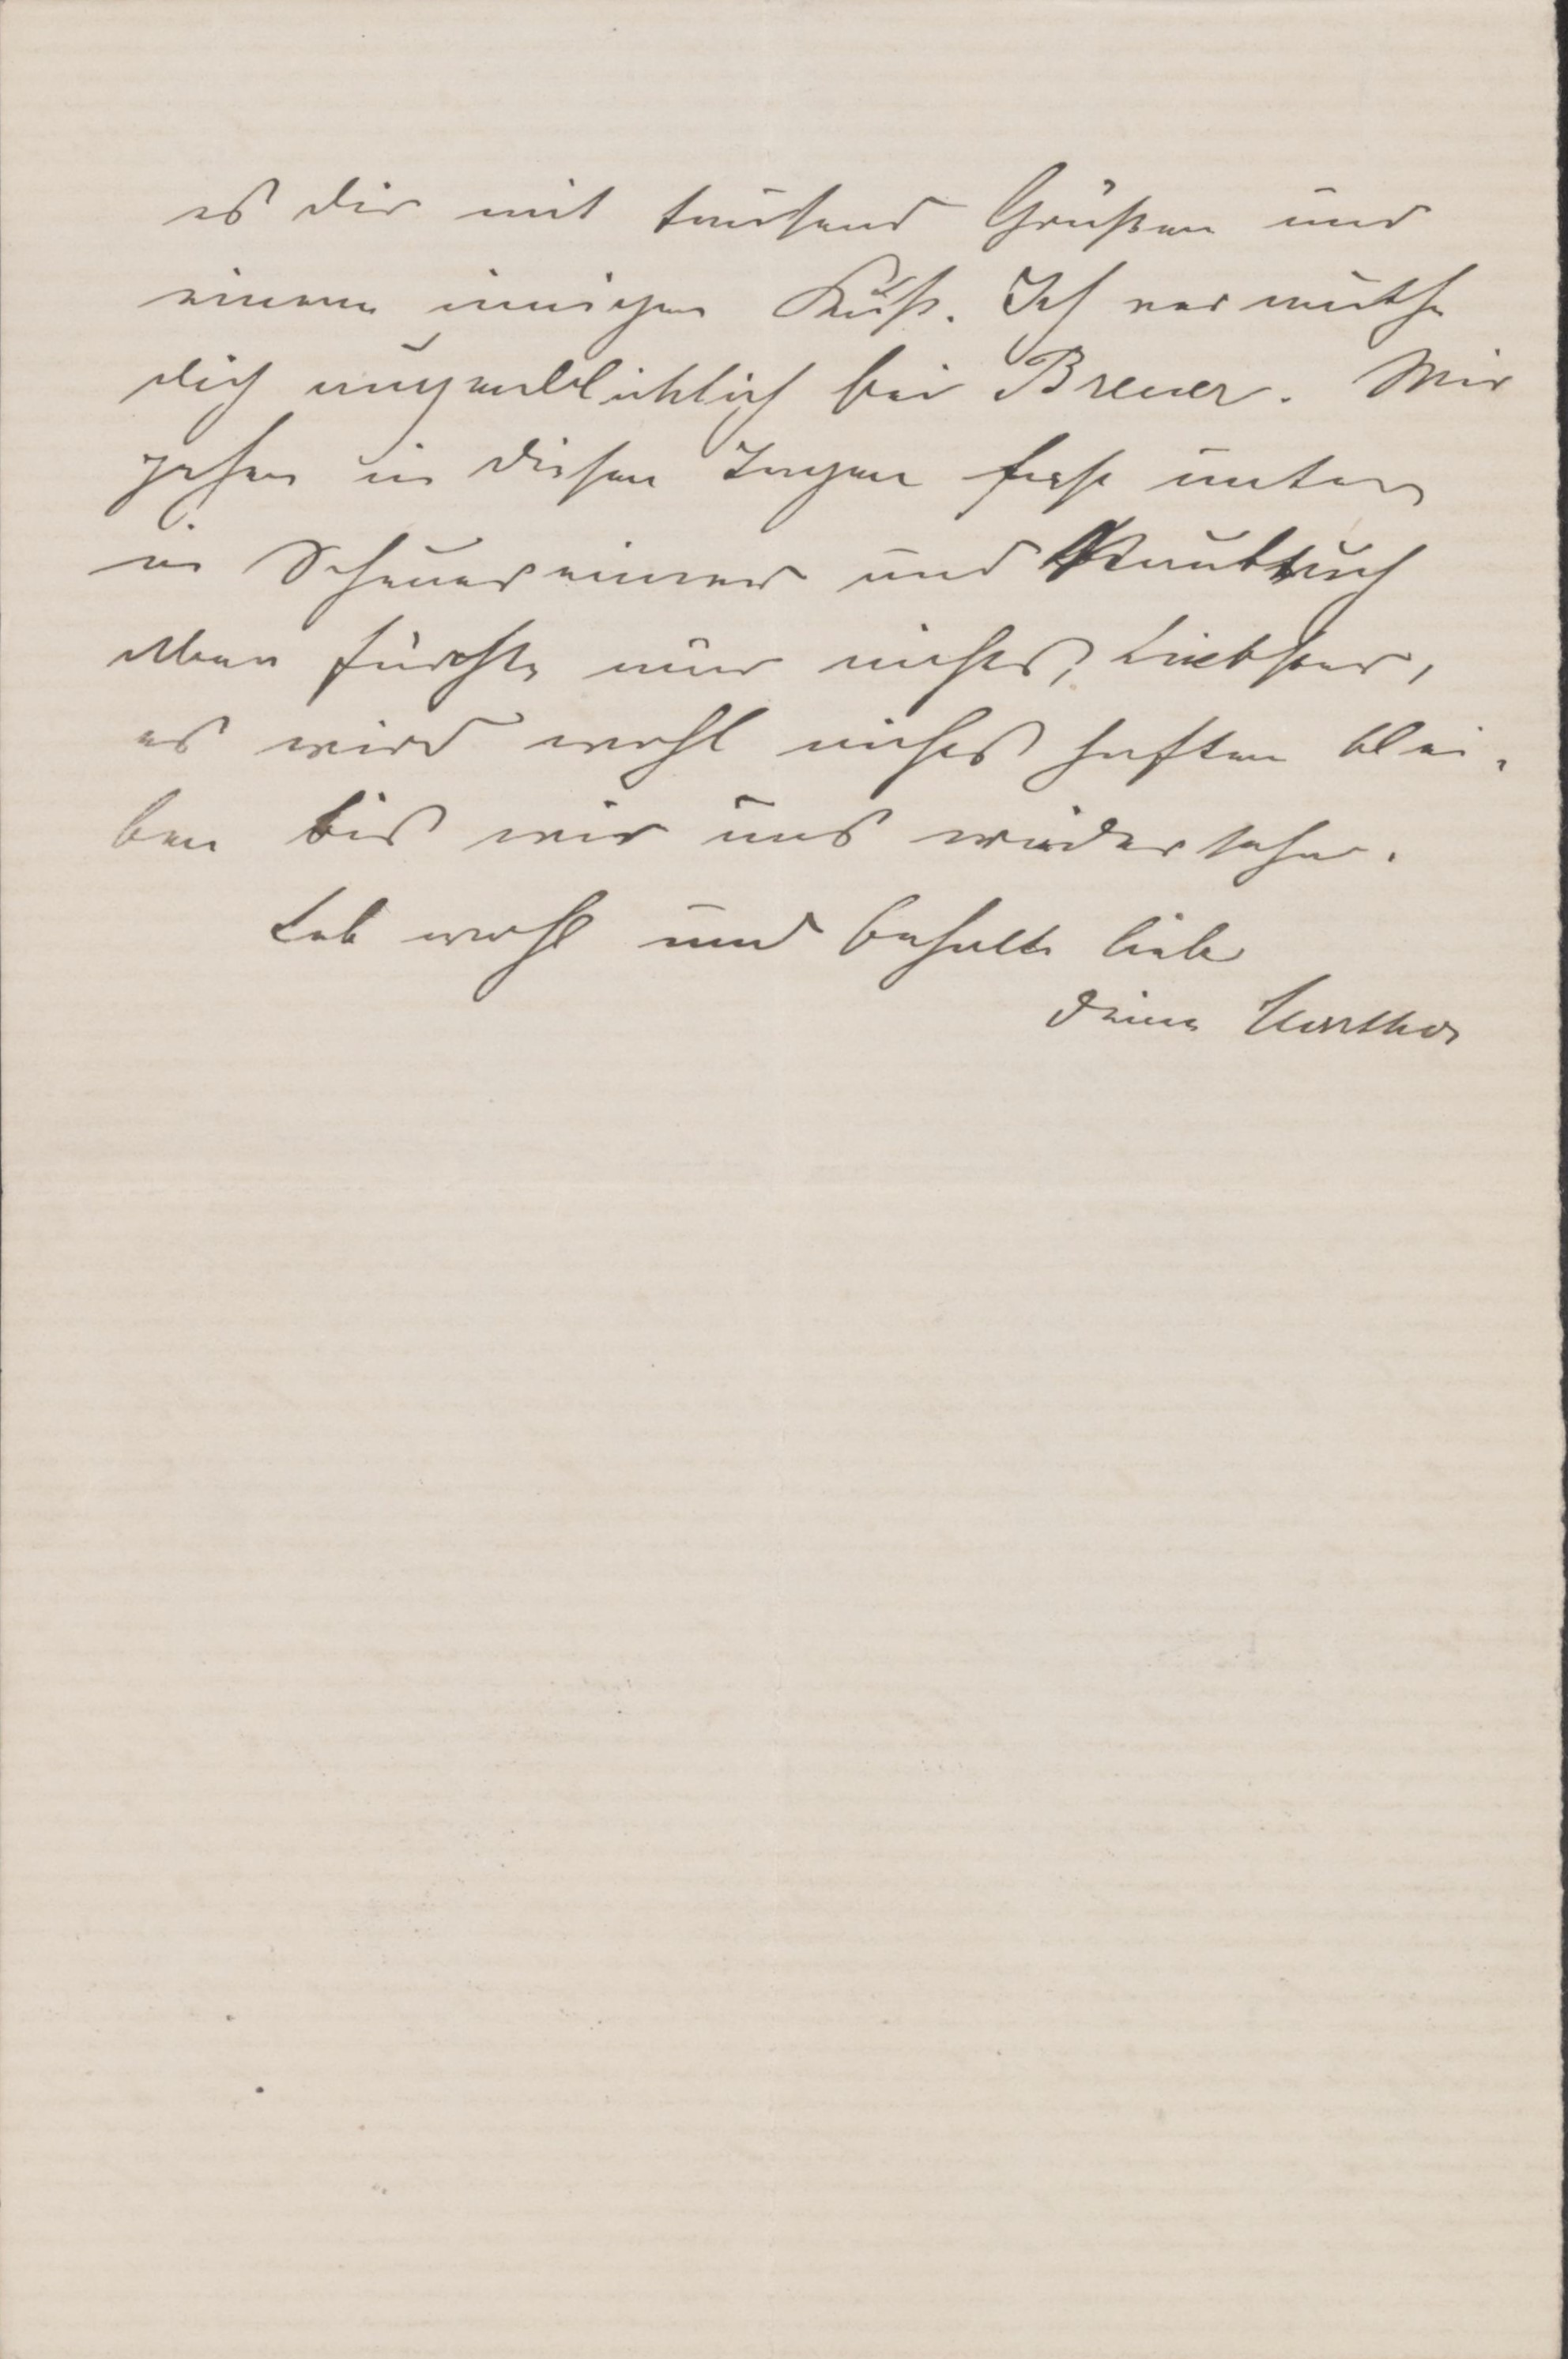 es Dir mit tausend Grüßen und
einem innigen Kuß. Ich vermuthe
Dich augenblicklich bei Breuer. Wir
gehen in diesen Tagen fast unter
in Scheuereimer und Staubtuch
aber fürchte nur nichts, Liebster,
es wird wohl nichts haften blei-
ben bis wir uns wiedersehen.
Leb wohl und behalte lieb
Deine Martha